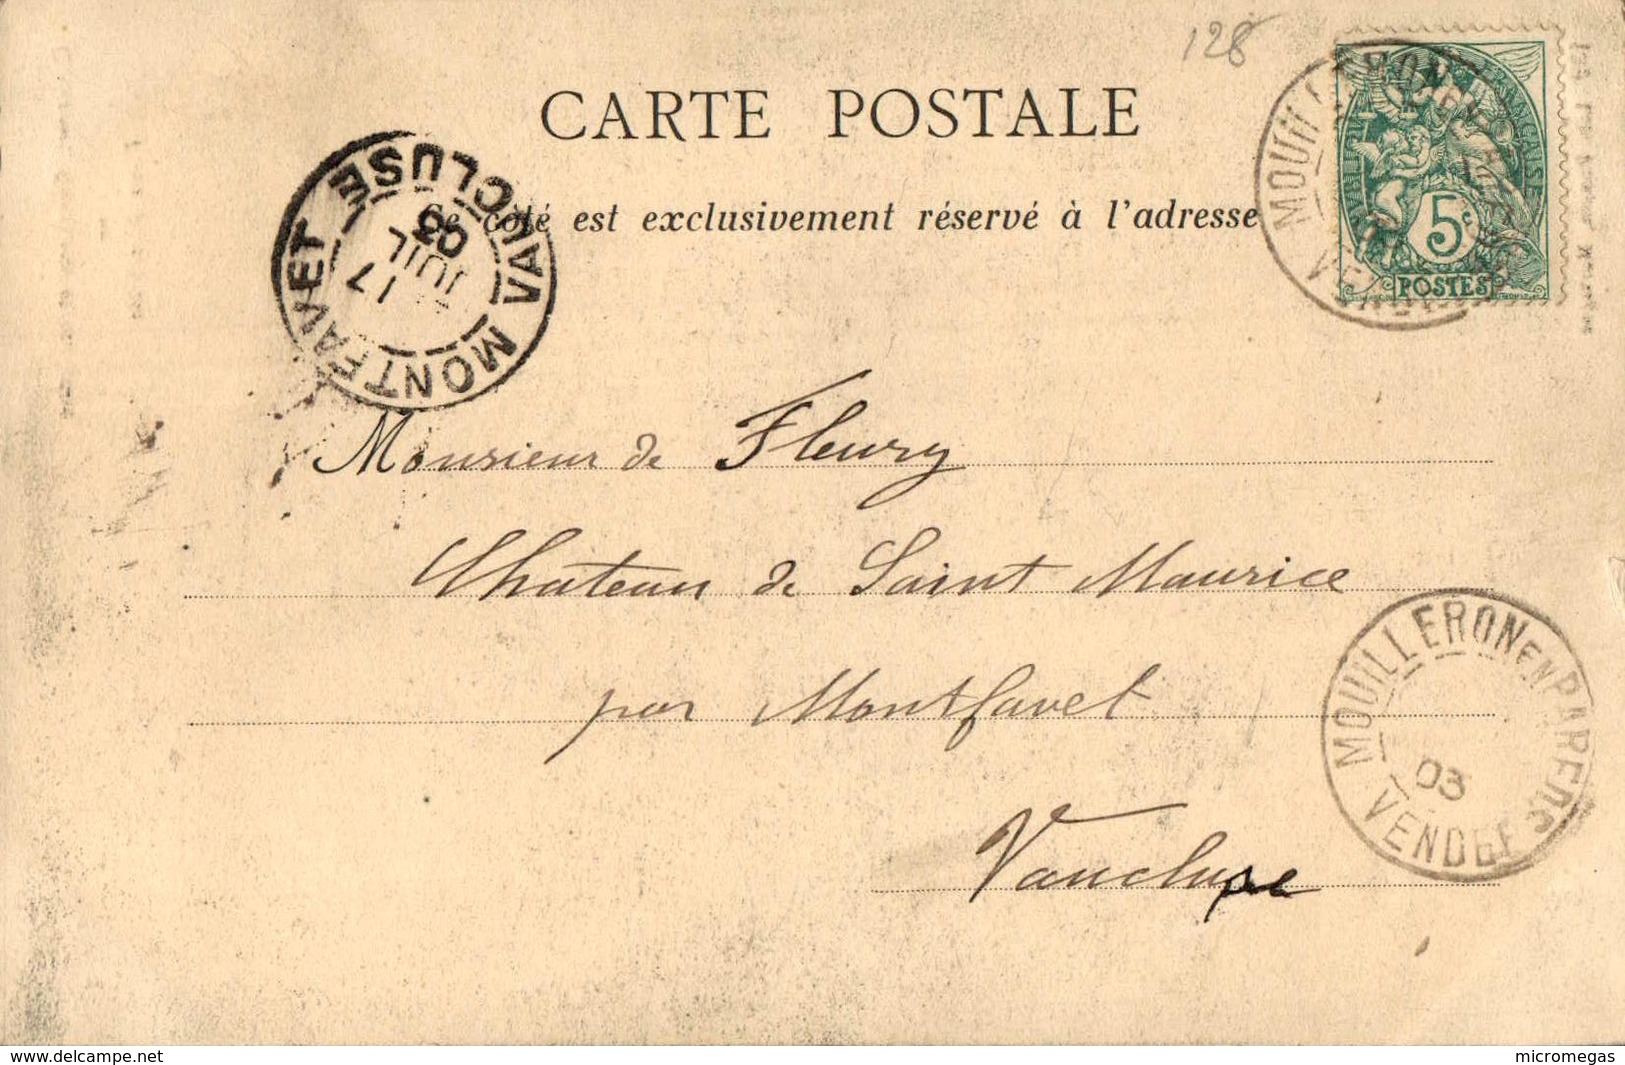 128
CARTE POSTALE
Ce côté est exclusivement réservé à l'adresse
MONTFAVET VAUCLUSE
17
JUIL
03
MOUILLERON EN
VENDEE
RÉPUBLIQUE FRANÇAISE
5c
POSTES
Monsieur de Fleury
Chateau de Saint Maurice
par Montfavet
Vaucluse
MOUILLERON EN PAREDS
03
VENDEE
www.delcampe.net
micromegas